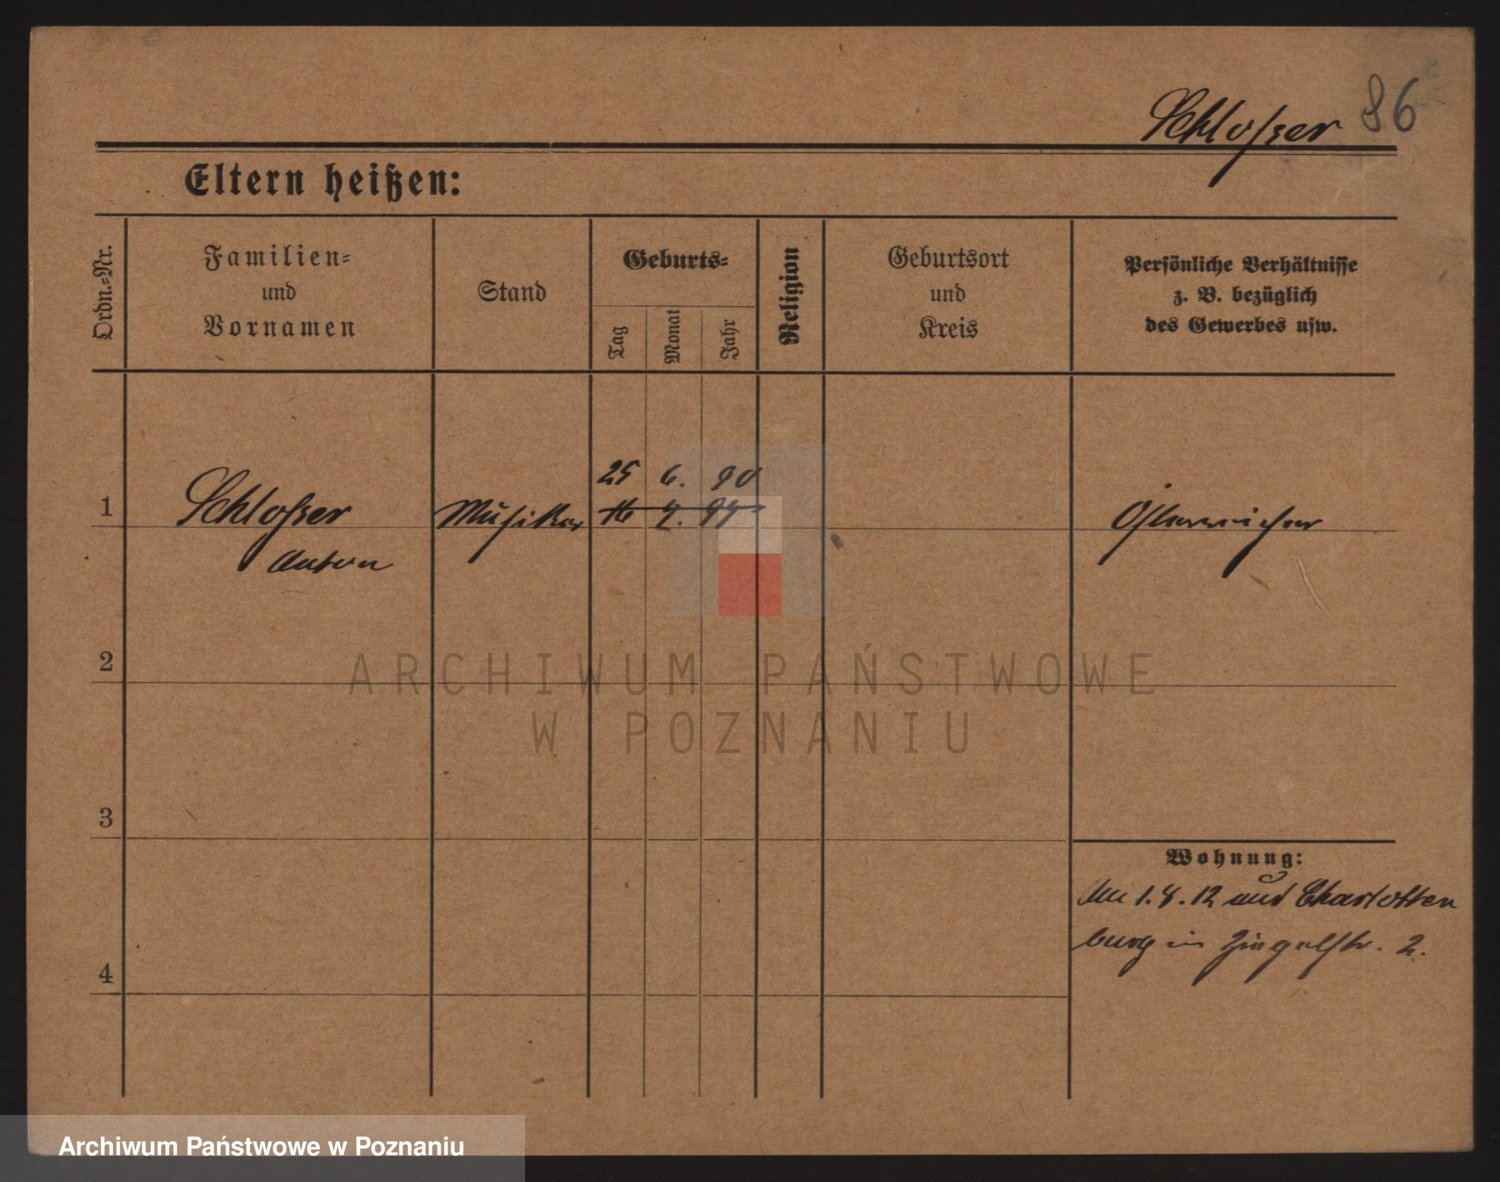 Schloßer 86
Eltern heißen:
Ordn.=Nr.
Familien=
und
Vornamen
Stand
Geburts=
Tag
Monat
Jahr
Religion
Geburtsort
und
Kreis
Persönliche Verhältnisse
z. B. bezüglich
des Gewerbes usw.
25 6. 90
1 Schloßer Musiker 16 4. 94 Österreicher
Anton
2
ARCHIWUM PAŃSTWOWE
W POZNANIU
3
Wohnung:
Am 1. 8. 12 aus Charlotten
4 burg in 2.
Archiwum Państwowe w Poznaniu